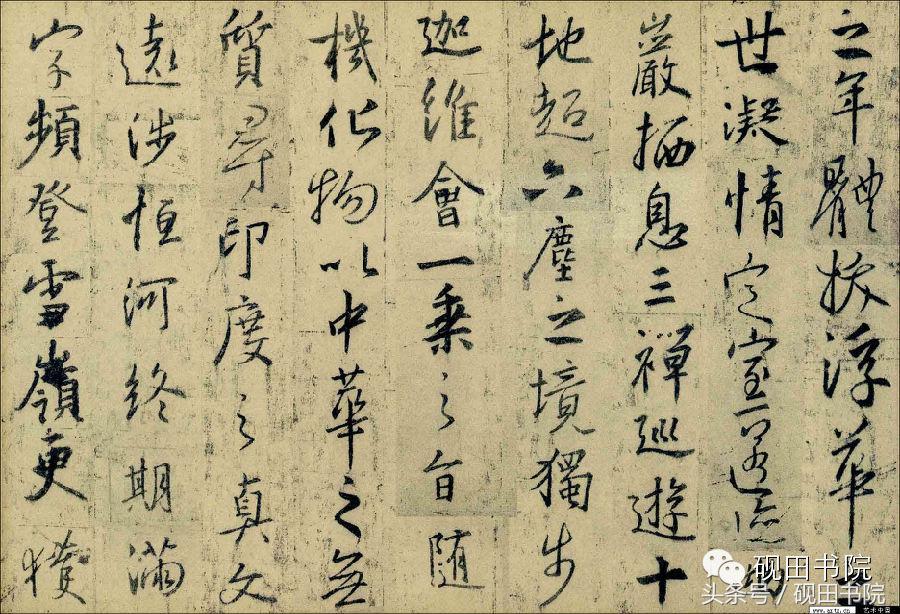 之年體拔浮華之
世凝情定室匿迹幽
巖栖息三禪巡遊十
地超六塵之境獨步
迦維會一乘之旨随
機化物以中華之無
質尋印度之真文
遠涉恒河終期滿
字頻登雪嶺更獲
砚田书院
头条号 / 砚田书院
www.artx.cn 艺术中国